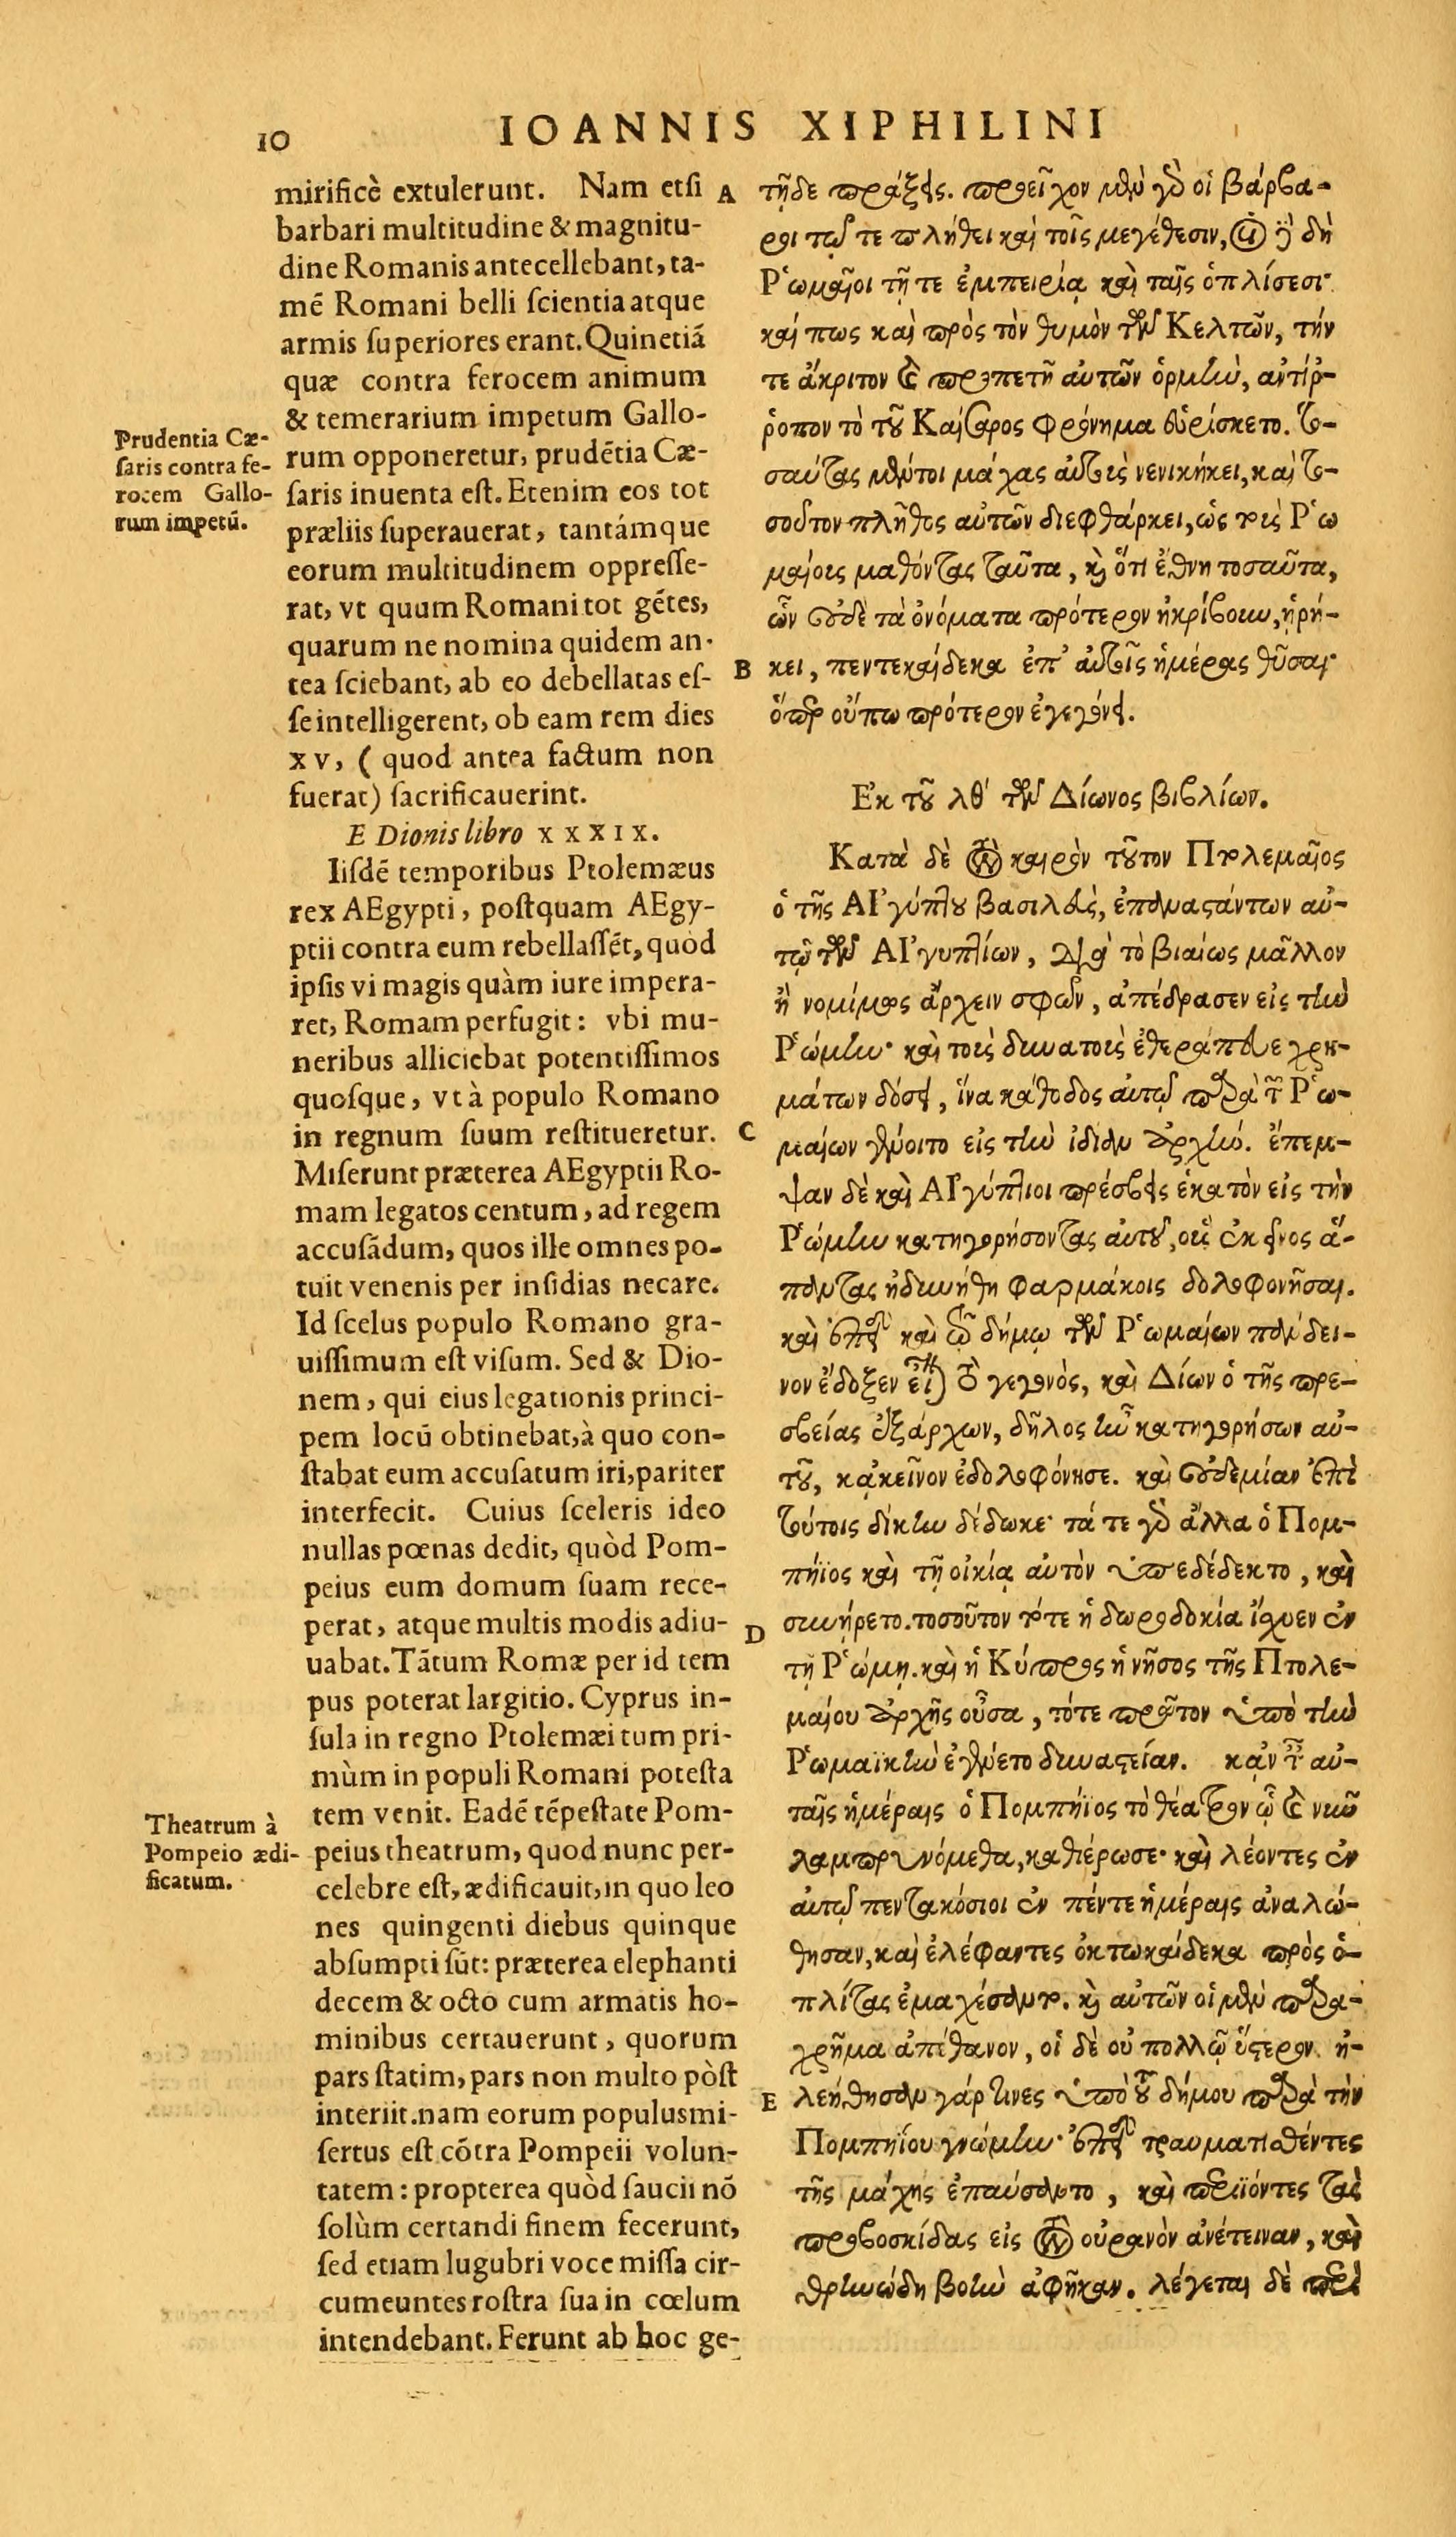 10
IOANNIS XIPHILINI
mirificè extulerunt. Nam etſi
barbari multitudine & magnitu-
dine Romanis antecellebant, ta-
mẽ Romani belli ſcientia atque
armis ſuperiores erant. Quinetiã
quæ contra ferocem animum
& temerarium impetum Gallo-
rum opponeretur, prudẽtia Cæ-
ſaris inuenta eſt. Etenim eos tot
præliis ſuperauerat, tantámque
eorum multitudinem oppreſſe-
rat, vt quum Romani tot gẽtes,
quarum ne nomina quidem an-
tea ſciebant, ab eo debellatas eſ-
ſe intelligerent, ob eam rem dies
xv, ( quod antea factum non
fuerat) ſacrificauerint.
E Dionis libro XXXIX.
Iiſdẽ temporibus Ptolemæus
rex AEgypti, poſtquam AEgy-
ptii contra eum rebellaſſẽt, quòd
ipſis vi magis quàm iure impera-
ret, Romam perfugit: vbi mu-
neribus alliciebat potentiſſimos
quoſque, vt à populo Romano
in regnum ſuum reſtitueretur.
Miſerunt præterea AEgyptii Ro-
mam legatos centum, ad regem
accuſãdum, quos ille omnes po-
tuit venenis per inſidias necare.
Id ſcelus populo Romano gra-
uiſſimum eſt viſum. Sed & Dio-
nem, qui eius legationis princi-
pem locũ obtinebat, à quo con-
ſtabat eum accuſatum iri, pariter
interfecit. Cuius ſceleris ideo
nullas pœnas dedit, quòd Pom-
peius eum domum ſuam rece-
perat, atque multis modis adiu-
uabat. Tãtum Romæ per id tem
pus poterat largitio. Cyprus in-
ſula in regno Ptolemæi tum pri-
mùm in populi Romani poteſta
tem venit. Eadẽ tẽpeſtate Pom-
peius theatrum, quod nunc per-
celebre eſt, ædificauit, in quo leo
nes quingenti diebus quinque
abſumpti ſũt: præterea elephanti
decem & octo cum armatis ho-
minibus certauerunt, quorum
pars ſtatim, pars non multo pòſt
interiit. nam eorum populus mi-
ſertus eſt cõtra Pompeii volun-
tatem: propterea quòd ſaucii nõ
ſolùm certandi finem fecerunt,
ſed etiam lugubri voce miſſa cir-
cumeuntes roſtra ſua in cœlum
intendebant. Ferunt ab hoc ge-
Prudentia Cæ-
ſaris contra fe-
rocem Gallo-
rum impetũ.
Theatrum à
Pompeio ædi-
ficatum.
A
B
C
D
E
τῇδε πράξεις. προεῖχον μὲν γὰρ οἱ βάρβα-
ροι τῷ τε πλήθει καὶ τοῖς μεγέθεσιν, οἱ δὲ δὴ
Ῥωμαῖοι τῇ τε ἐμπειρίᾳ καὶ ταῖς ὁπλίσεσι·
καί πως καὶ πρὸς τὸν θυμὸν τῶν Κελτῶν, τήν
τε ἄκριτον καὶ προπετῆ αὐτῶν ὁρμὴν, ἀντίῤ-
ῥοπον τὸ τοῦ Καίσαρος φρόνημα εὑρίσκετο. το-
σαύτας μέντοι μάχας αὐτοὺς νενικήκει, καὶ το-
σοῦτον πλῆθος αὐτῶν διεφθάρκει, ὡς τοὺς Ῥω
μαίους μαθόντας ταῦτα, καὶ ὅτι ἔθνη τοσαῦτα,
ὧν οὐδὲ τὰ ὀνόματα πρότερον ἠκρίβουν, ᾑρή-
κει, πεντεκαίδεκα ἐπ' αὐτοῖς ἡμέρας θῦσαι·
ὅπερ οὔπω πρότερον ἐγεγόνει.
Ἐκ τοῦ λθ' τῶν Δίωνος βιβλίων.
Κατὰ δὲ τὸν καιρὸν τοῦτον Πτολεμαῖος
ὁ τῆς ΑΙ'γύπτου βασιλεὺς, ἐπαναςάντων αὐ-
τῷ τῶν ΑΙ'γυπτίων, διὰ τὸ βιαίως μᾶλλον
ἢ νομίμως ἄρχειν σφῶν, ἀπέδρασεν εἰς τὴν
Ῥώμην· καὶ τοὺς δυνατοὺς ἐθεράπευε χρη-
μάτων δόσει, ἵνα κάθοδος αὐτῷ παρὰ τῶν Ῥω-
μαίων γένοιτο εἰς τὴν ἰδίαν ἀρχήν. ἔπεμ-
ψαν δὲ καὶ ΑΙ'γύπτιοι πρέσβεις ἑκατὸν εἰς τὴν
Ῥώμην κατηγορήσοντας αὐτοῦ, οὓς ἐκεῖνος ἅ-
παντας ἠδυνήθη φαρμάκοις δολοφονῆσαι.
καὶ ἐπεὶ καὶ τῷ δήμῳ τῶν Ῥωμαίων πάνδει-
νον ἔδοξεν εἶναι τὸ γεγονὸς, καὶ Δίων ὁ τῆς πρε-
σβείας ἐξάρχων, δῆλος ἦν κατηγορήσων αὐ-
τοῦ, κἀκεῖνον ἐδολοφόνησε. καὶ οὐδεμίαν ἐπὶ
τούτοις δίκην δέδωκε· τά τε γὰρ ἄλλα ὁ Πομ-
πήϊος καὶ τῇ οἰκίᾳ αὐτὸν ὑπεδέδεκτο, καὶ
συνῄρετο. τοσοῦτον τότε ἡ δωροδοκία ἴσχυεν ἐν
τῇ Ῥώμῃ. καὶ ἡ Κύπρος ἡ νῆσος τῆς Πτολε-
μαίου ἀρχῆς οὖσα, τότε πρῶτον ὑπὸ τὴν
Ῥωμαϊκὴν ἐγένετο δυναςείαν. κἀν ταῖς αὐ-
ταῖς ἡμέραις ὁ Πομπήϊος τὸ θέατρον ᾧ καὶ νῦν
λαμπρυνόμεθα, καθιέρωσε· καὶ λέοντες ἐν
αὐτῷ πεντακόσιοι ἐν πέντε ἡμέραις ἀναλώ-
θησαν, καὶ ἐλέφαντες ὀκτωκαίδεκα πρὸς ὁ-
πλίτας ἐμαχέσαντο. καὶ αὐτῶν οἱ μὲν παρα-
χρῆμα ἀπέθανον, οἱ δὲ οὐ πολλῷ ὕςερον. ἠ-
λεήθησαν γάρ τινες ὑπὸ τοῦ δήμου παρὰ τὴν
Πομπηΐου γνώμην· ἐπεὶ τραυματιθέντες
τῆς μάχης ἐπαύσαντο, καὶ περιϊόντες τὰς
προβοσκίδας εἰς τὸν οὐρανὸν ἀνέτειναν, καὶ
θρηνώδη βοὴν ἀφῆκαν. λέγεται δὲ περὶ